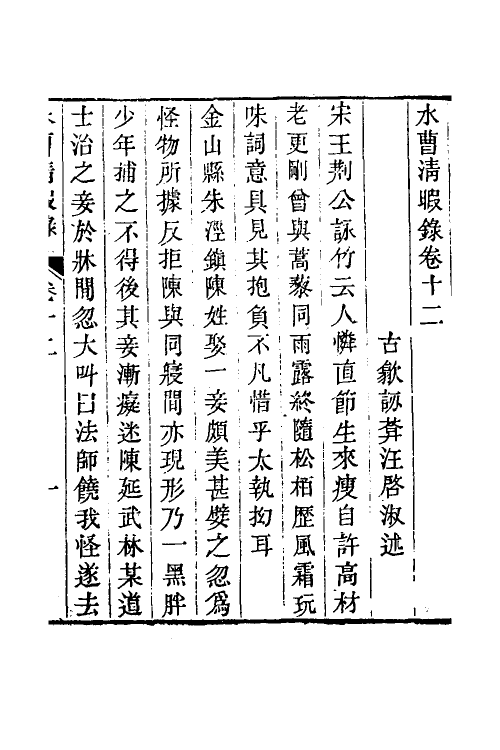 水曹清暇錄卷十二
古歙訒葊汪啓淑述
宋王荆公詠竹云人憐直節生來瘦自許高材
老更剛曾與蒿藜同雨露終隨松栢歷風霜玩
味詞意具見其抱負不凡惜乎太執拗耳
金山縣朱涇鎭陳姓娶一妾頗美甚嬖之忽爲
怪物所據反拒陳與同寢間亦現形乃一黑胖
少年捕之不得後其妾漸癡迷陳延武林某道
士治之妾於牀間忽大叫曰法師饒我怪遂去
水曹清暇錄 卷十二 一